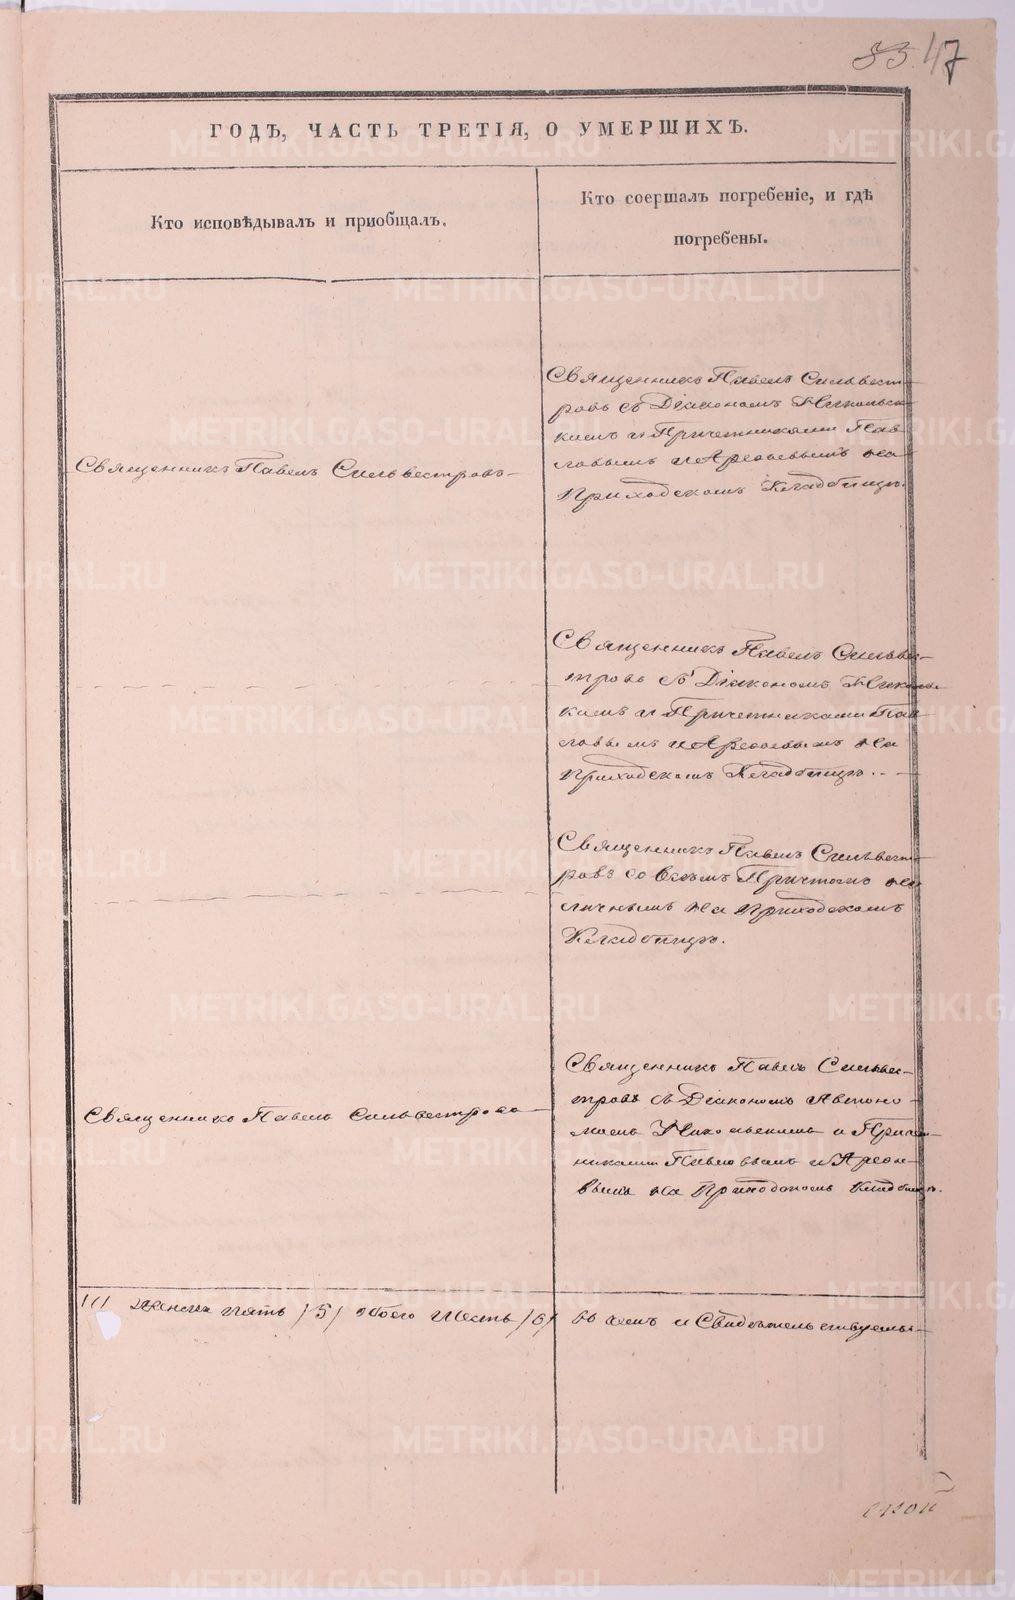 85. 47
ГОДЪ, ЧАСТЬ ТРЕТІЯ, О УМЕРШИХЪ.
Кто исповѣдывалъ и приобщалъ.
Кто соершалъ погребеніе, и гдѣ
погребены.
Священникъ Павелъ Сильвестровъ
Священникъ Павелъ Сильвест-
ровъ съ Діакономъ Никольс-
кимъ и Причетниками Пав-
ловымъ и на
Приходскомъ Кладбищѣ.
Священникъ Павелъ Сильвес-
тровъ съ Діакономъ Николь-
кимъ и Причетниками Пав-
ловымъ и на
Приходскомъ Кладбищѣ.
Священникъ Павелъ Сильвест-
ровъ со всѣмъ Причтомъ на
личнымъ на Приходскомъ
Кладбищѣ.
Священникъ Павелъ Сильвестровъ
Священникъ Павелъ Сильвес-
тровъ съ Діакономъ Автоно-
момъ Никольскимъ и Причет-
никами Павловымъ и
вымъ на Приходскомъ Кладбищѣ.
/1/ женска пять /5/ обоего шесть /6/
въ чемъ и Свидѣтельствуемъ
METRIKI.GASO-URAL.RU